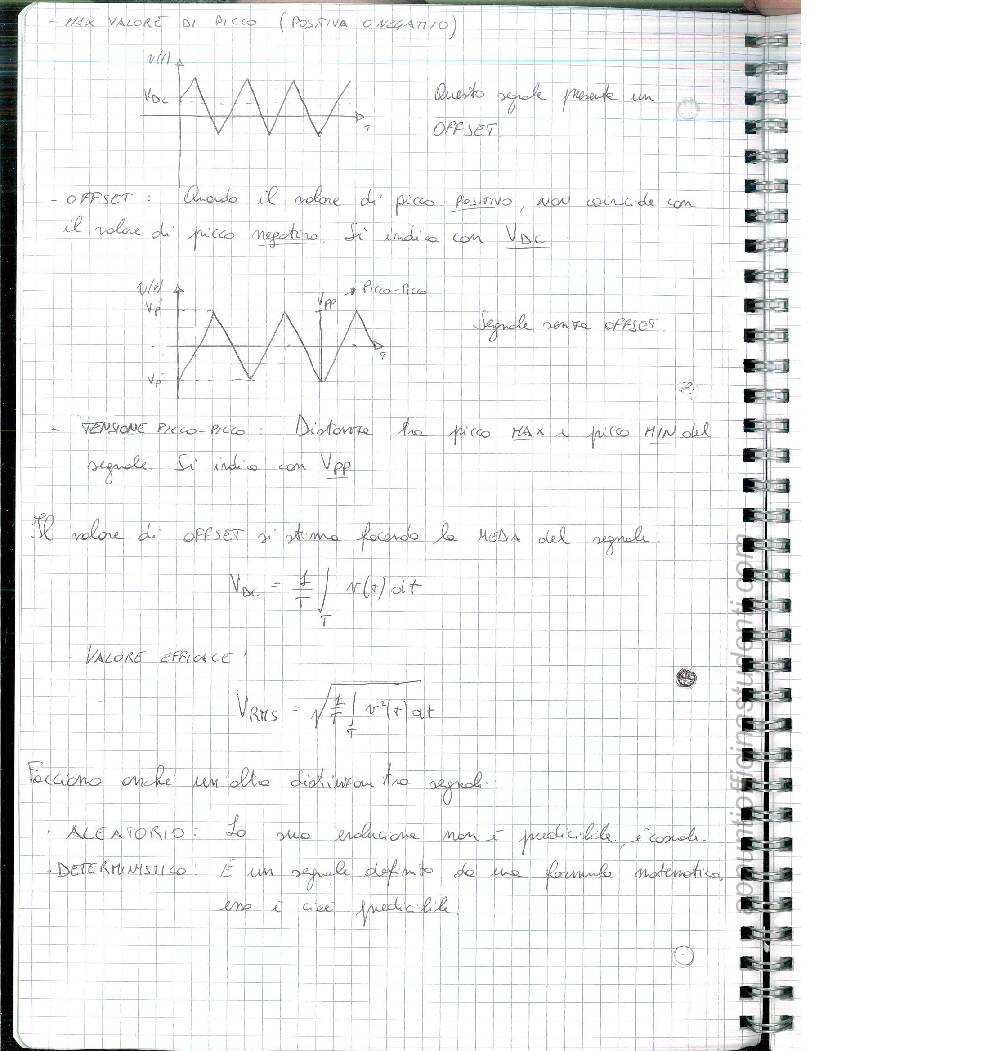 - MAX VALORE DI PICCO (POSITIVA O NEGATIVO)
V(t)
VDC
T
Questo segnale presenta un
OFFSET
- OFFSET : Quando il valore di picco POSITIVO, NON coincide con
il valore di picco negativo. Si indica con VDC
V(t)
Vp
VPP
Picco-Picco
Segnale senza OFFSET.
Vp
- TENSIONE PICCO-PICCO : Distanza tra picco MAX e picco MIN del
segnale. Si indica con VPP
Il valore di OFFSET si stima facendo la MEDIA del segnale.
VDC = 1/T ∫T v(t) dt
- VALORE EFFICACE
VRMS = √(1/T ∫T v²(t) dt)
Facciamo anche un'altra distinzione tra segnali.
· ALEATORIO : La sua evoluzione non è predicibile, è casuale.
· DETERMINISTICO : È un segnale definito da una formula matematica,
cioè predicibile.
appuntiofficinastudenti.com